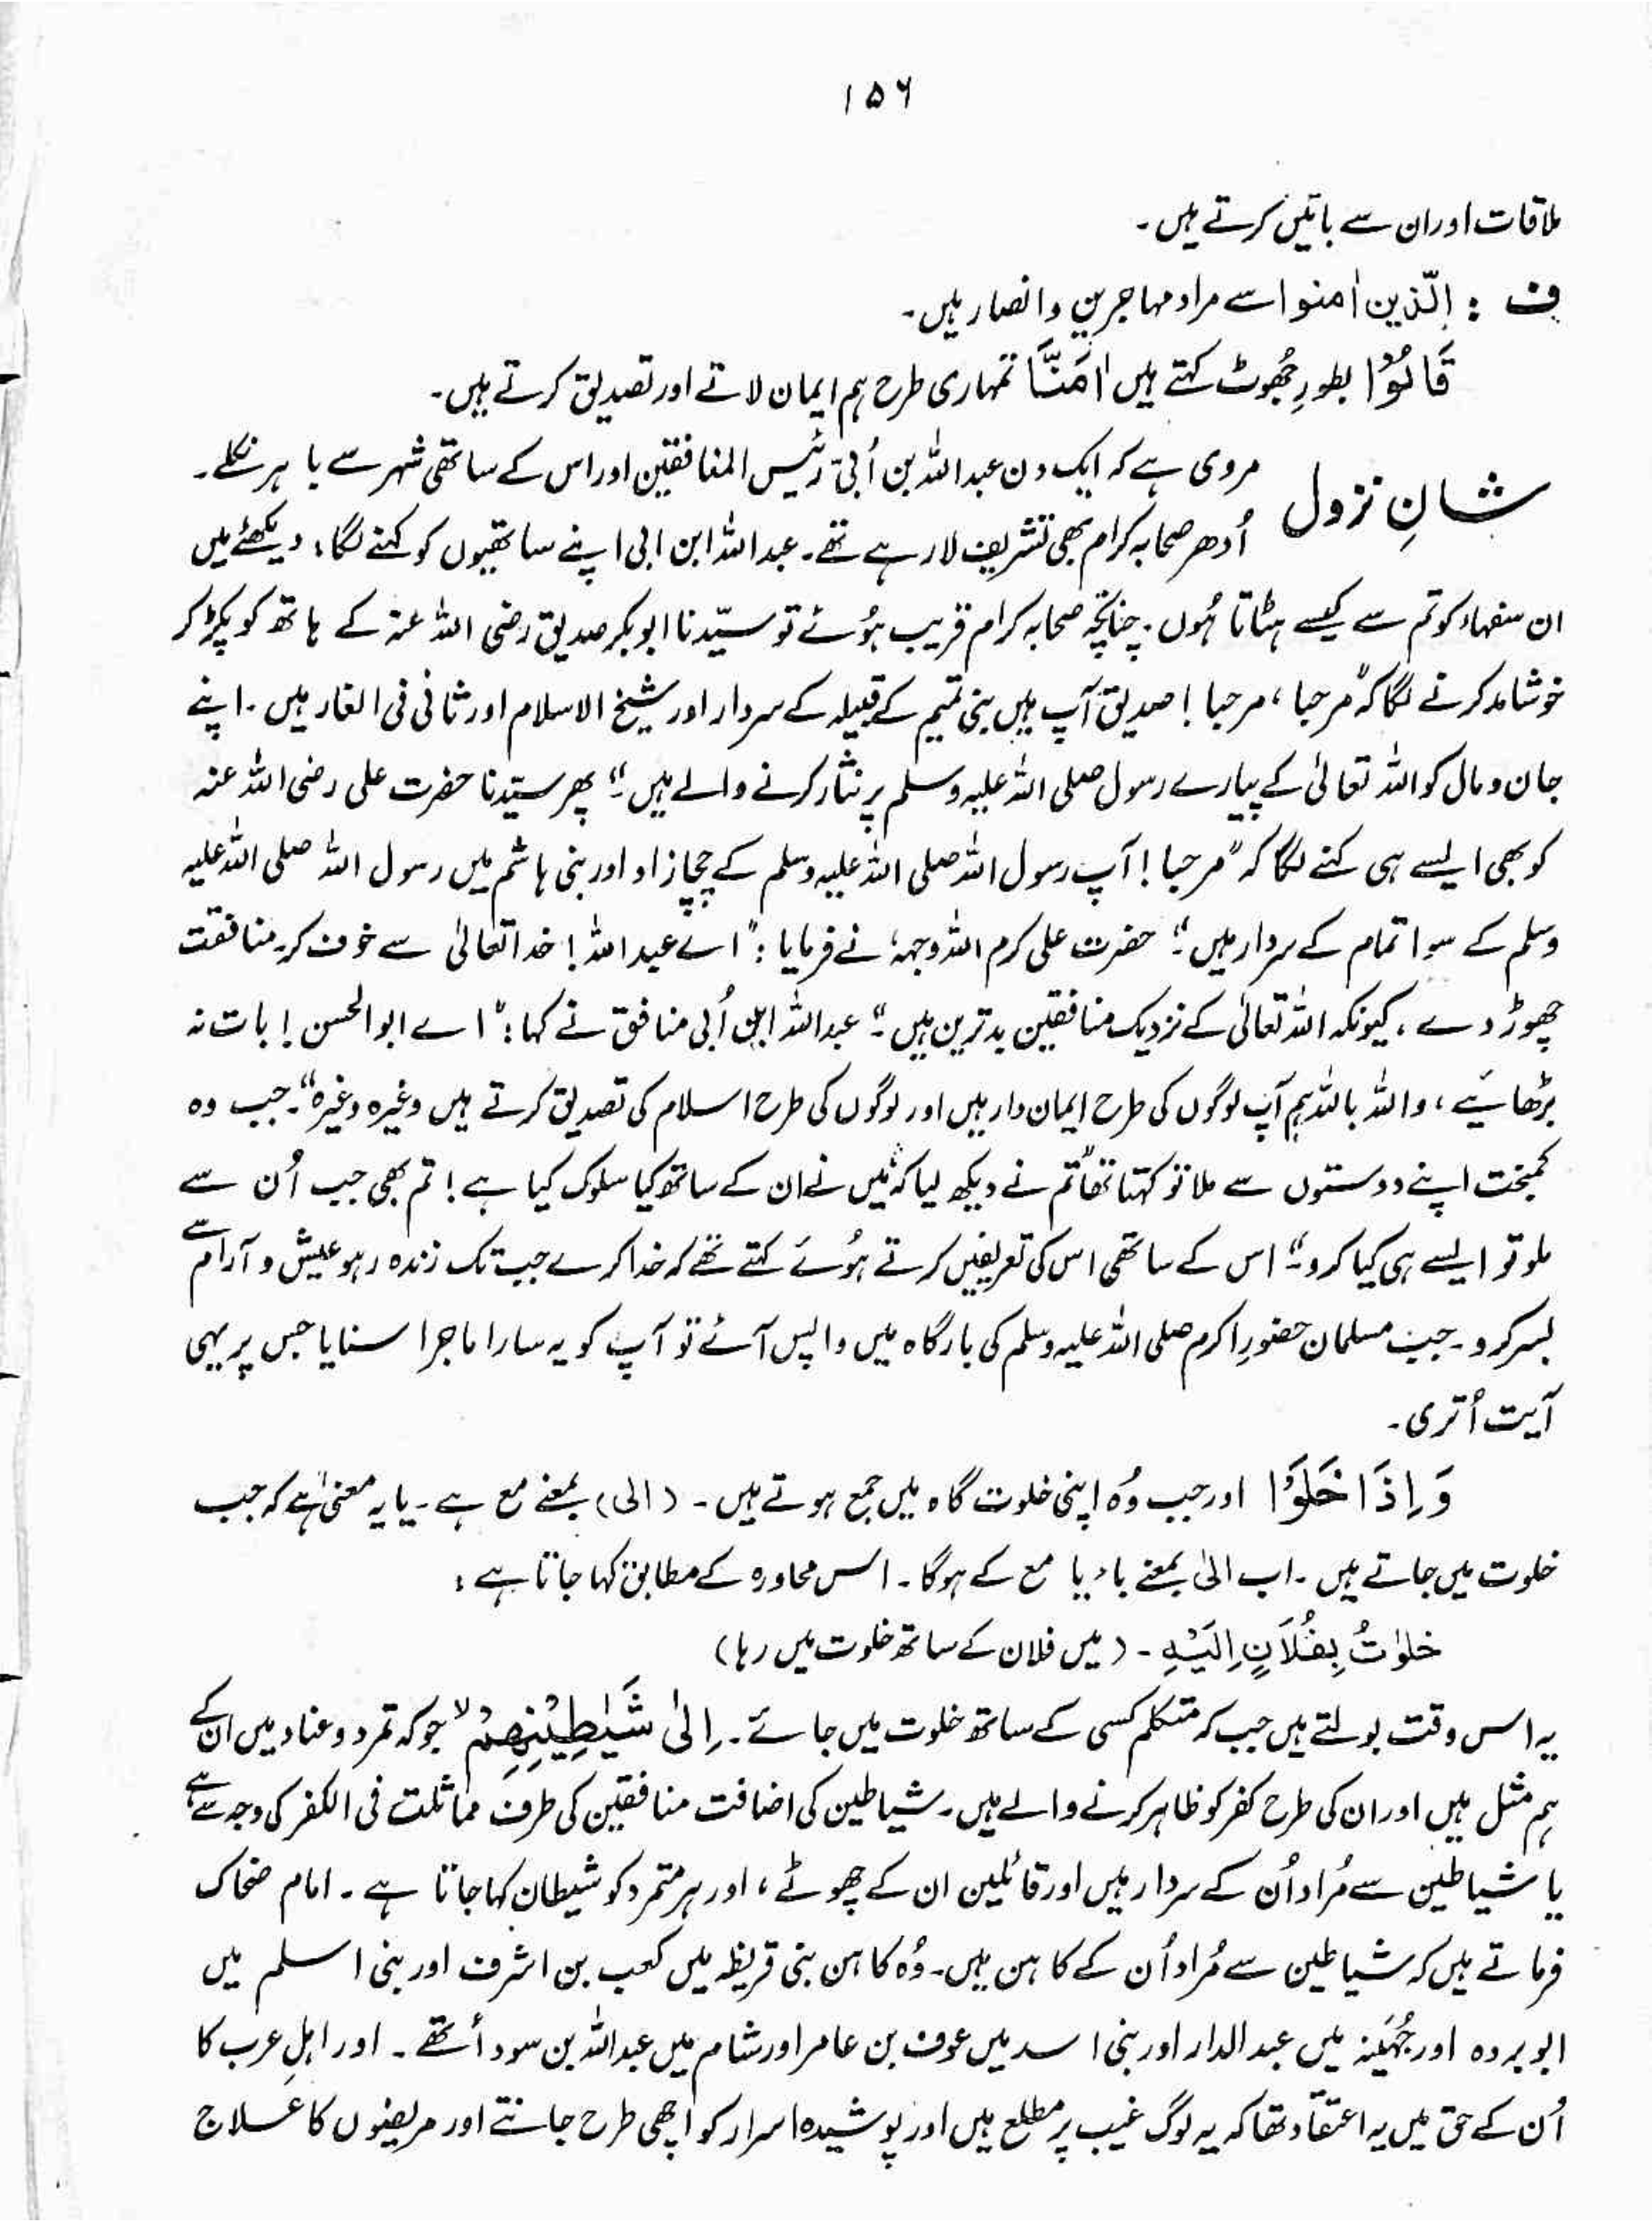 ۱۵۶
ملاقات اور ان سے باتیں کرتے ہیں۔
ف : الّذین اٰمنوا سے مراد مہاجرین و انصار ہیں۔
قَالُوْۤا بطورِ جُھوٹ کہتے ہیں اٰمَنَّا تمہاری طرح ہم ایمان لاتے اور تصدیق کرتے ہیں۔
شانِ نزول مروی ہے کہ ایک دن عبداللہ بن اُبیّ رئیس المنافقین اور اس کے ساتھی شہر سے باہر نکلے۔
اُدھر صحابہ کرام بھی تشریف لا رہے تھے۔ عبداللہ ابن ابی اپنے ساتھیوں کو کہنے لگا: دیکھئے میں
ان سفہاء کو تم سے کیسے ہٹاتا ہُوں۔ چنانچہ صحابہ کرام قریب ہُوئے تو سیّدنا ابوبکر صدیق رضی اللہ عنہ کے ہاتھ کو پکڑ کر
خوشامد کرنے لگا کہ "مرحبا، مرحبا! صدیق آپ ہیں بنی تمیم کے قبیلہ کے سردار اور شیخ الاسلام اور ثانی فی الغار ہیں۔ اپنے
جان و مال کو اللہ تعالیٰ کے پیارے رسول صلی اللہ علیہ وسلم پر نثار کرنے والے ہیں۔" پھر سیّدنا حضرت علی رضی اللہ عنہ
کو بھی ایسے ہی کہنے لگا کہ "مرحبا! آپ رسول اللہ صلی اللہ علیہ وسلم کے چچا زاد اور بنی ہاشم میں رسول اللہ صلی اللہ علیہ
وسلم کے سوا تمام کے سردار ہیں۔" حضرت علی کرم اللہ وجہہٗ نے فرمایا: "اے عبداللہ! خدا تعالیٰ سے خوف کر۔ منافقت
چھوڑ دے، کیونکہ اللہ تعالیٰ کے نزدیک منافقین بدترین ہیں۔" عبداللہ ابن اُبی منافق نے کہا: "اے ابوالحسن! بات نہ
بڑھائیے، واللہ باللہ ہم آپ لوگوں کی طرح ایمان دار ہیں اور لوگوں کی طرح اسلام کی تصدیق کرتے ہیں وغیرہ وغیرہ"۔ جب وہ
کمبخت اپنے دوستوں سے ملا تو کہتا تھا "تم نے دیکھ لیا کہ میں نے ان کے ساتھ کیا سلوک کیا ہے! تم بھی جب اُن سے
ملو تو ایسے ہی کیا کرو۔" اس کے ساتھی اس کی تعریفیں کرتے ہُوئے کہتے تھے کہ خدا کرے جب تک زندہ رہو عیش و آرام سے
بسر کرو۔ جب مسلمان حضورِ اکرم صلی اللہ علیہ وسلم کی بارگاہ میں واپس آئے تو آپ کو یہ سارا ماجرا سنایا جس پر یہی
آیت اُتری۔
وَ اِذَا خَلَوْا اور جب وُہ اپنی خلوت گاہ میں جمع ہوتے ہیں۔ (الیٰ) بمعنے مع ہے۔ یا یہ معنیٰ ہے کہ جب
خلوت میں جاتے ہیں۔ اب الیٰ بمعنے باء یا مع کے ہوگا۔ اس محاورہ کے مطابق کہا جاتا ہے :
خلوتُ بِفُلَانٍ اِلَیْہِ۔ (میں فلان کے ساتھ خلوت میں رہا)
یہ اس وقت بولتے ہیں جب کہ متکلم کسی کے ساتھ خلوت میں جائے۔ اِلیٰ شَیٰطِیْنِهِمْ ۙ جو کہ تمرد و عناد میں ان کے
ہم مثل ہیں اور ان کی طرح کفر کو ظاہر کرنے والے ہیں۔ شیاطین کی اضافت منافقین کی طرف مماثلت فی الکفر کی وجہ سے ہے
یا شیاطین سے مُراد اُن کے سردار ہیں اور قائلین ان کے چھوٹے، اور ہر متمرد کو شیطان کہا جاتا ہے۔ امام ضحاک
فرماتے ہیں کہ شیاطین سے مُراد اُن کے کاہن ہیں۔ وُہ کاہن بنی قریظہ میں کعب بن اشرف اور بنی اسلم میں
ابو بردہ اور جُہَینہ میں عبد الدار اور بنی اسد میں عوف بن عامر اور شام میں عبداللہ بن سوداء تھے۔ اور اہلِ عرب کا
اُن کے حق میں یہ اعتقاد تھا کہ یہ لوگ غیب پر مطلع ہیں اور پوشیدہ اسرار کو اچھی طرح جانتے اور مریضوں کا علاج